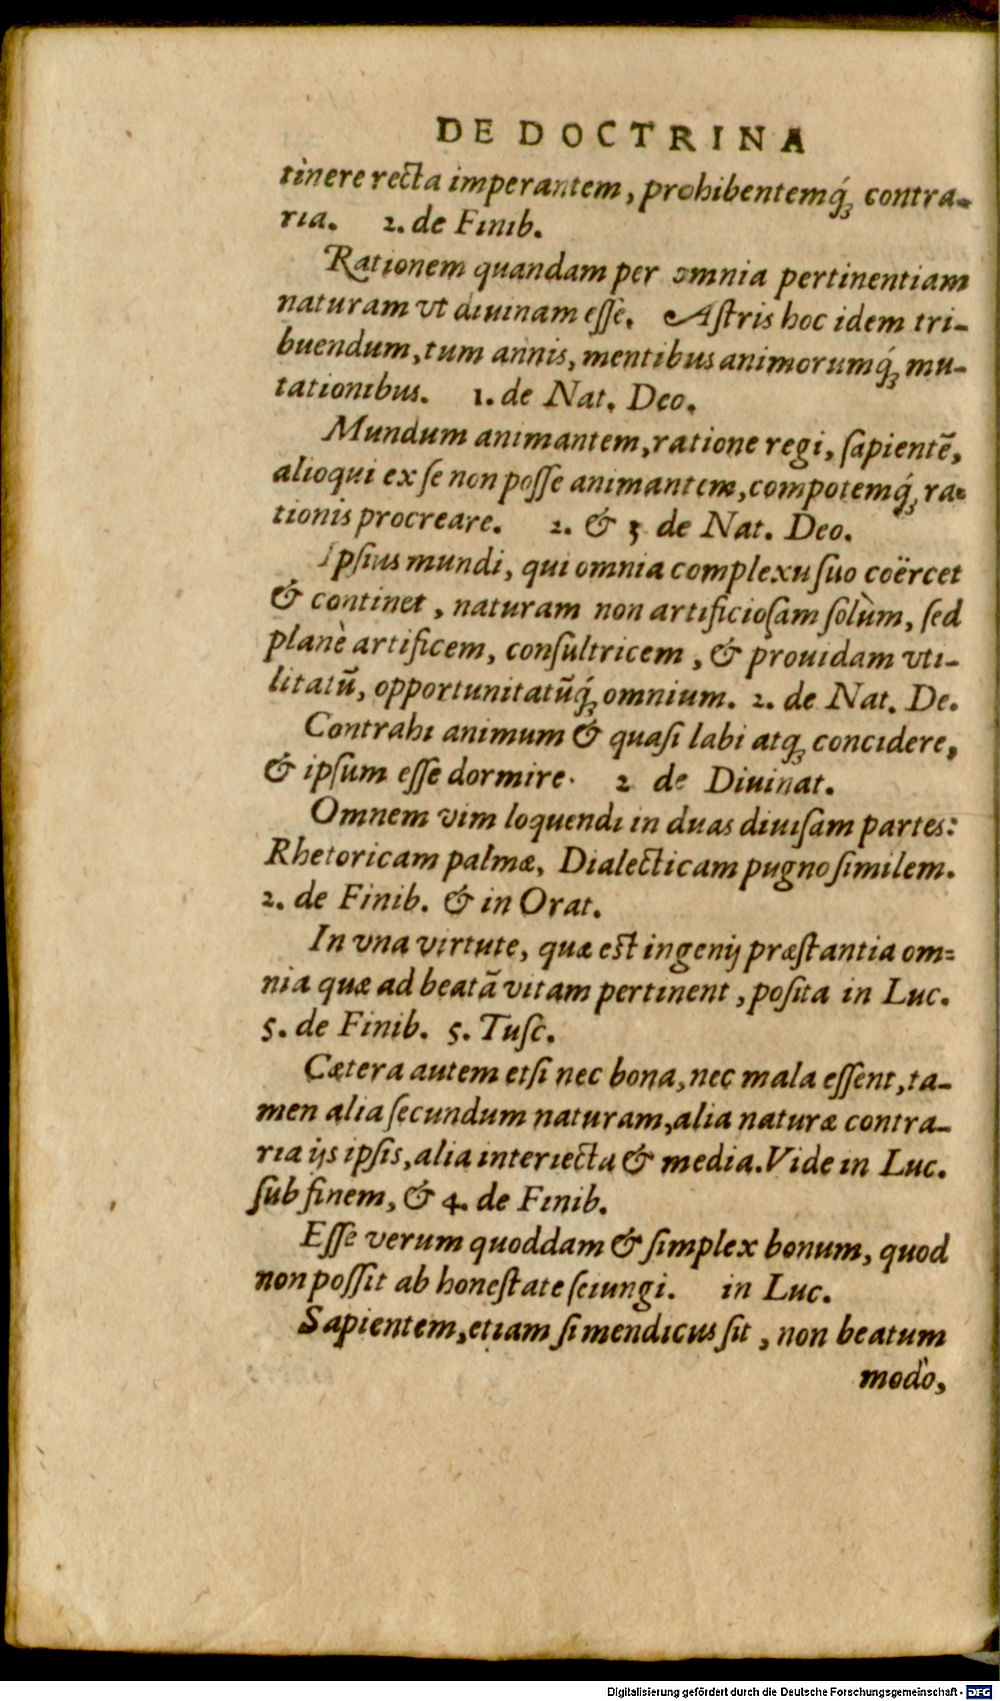 DE DOCTRINA
tinere recta imperantem, prohibentemq́; contra-
ria. 2. de Finib.
Rationem quandam per omnia pertinentiam
naturam vt diuinam esse. Astris hoc idem tri-
buendum, tum annis, mentibus animorumq́; mu-
tationibus. 1. de Nat. Deo.
Mundum animantem, ratione regi, sapientē,
alioqui ex se non posse animantem, compotemq́; ra-
tionis procreare. 2. & 3 de Nat. Deo.
Ipsius mundi, qui omnia complexu suo coërcet
& continet, naturam non artificiosam solùm, sed
planè artificem, consultricem, & prouidam vti-
litatū, opportunitatūq́; omnium. 2. de Nat. De.
Contrahi animum & quasi labi atq; concidere,
& ipsum esse dormire. 2 de Diuinat.
Omnem vim loquendi in duas diuisam partes:
Rhetoricam palmæ, Dialecticam pugno similem.
2. de Finib. & in Orat.
In vna virtute, quæ est ingenij præstantia om-
nia quæ ad beatā vitam pertinent, posita in Luc.
5. de Finib. 5. Tusc.
Cætera autem etsi nec bona, nec mala essent, ta-
men alia secundum naturam, alia naturæ contra-
ria ijs ipsis, alia interiecta & media. Vide in Luc.
sub finem, & 4. de Finib.
Esse verum quoddam & simplex bonum, quod
non possit ab honestate seiungi. in Luc.
Sapientem, etiam si mendicus sit, non beatum
modò,
Digitalisierung gefördert durch die Deutsche Forschungsgemeinschaft - DFG